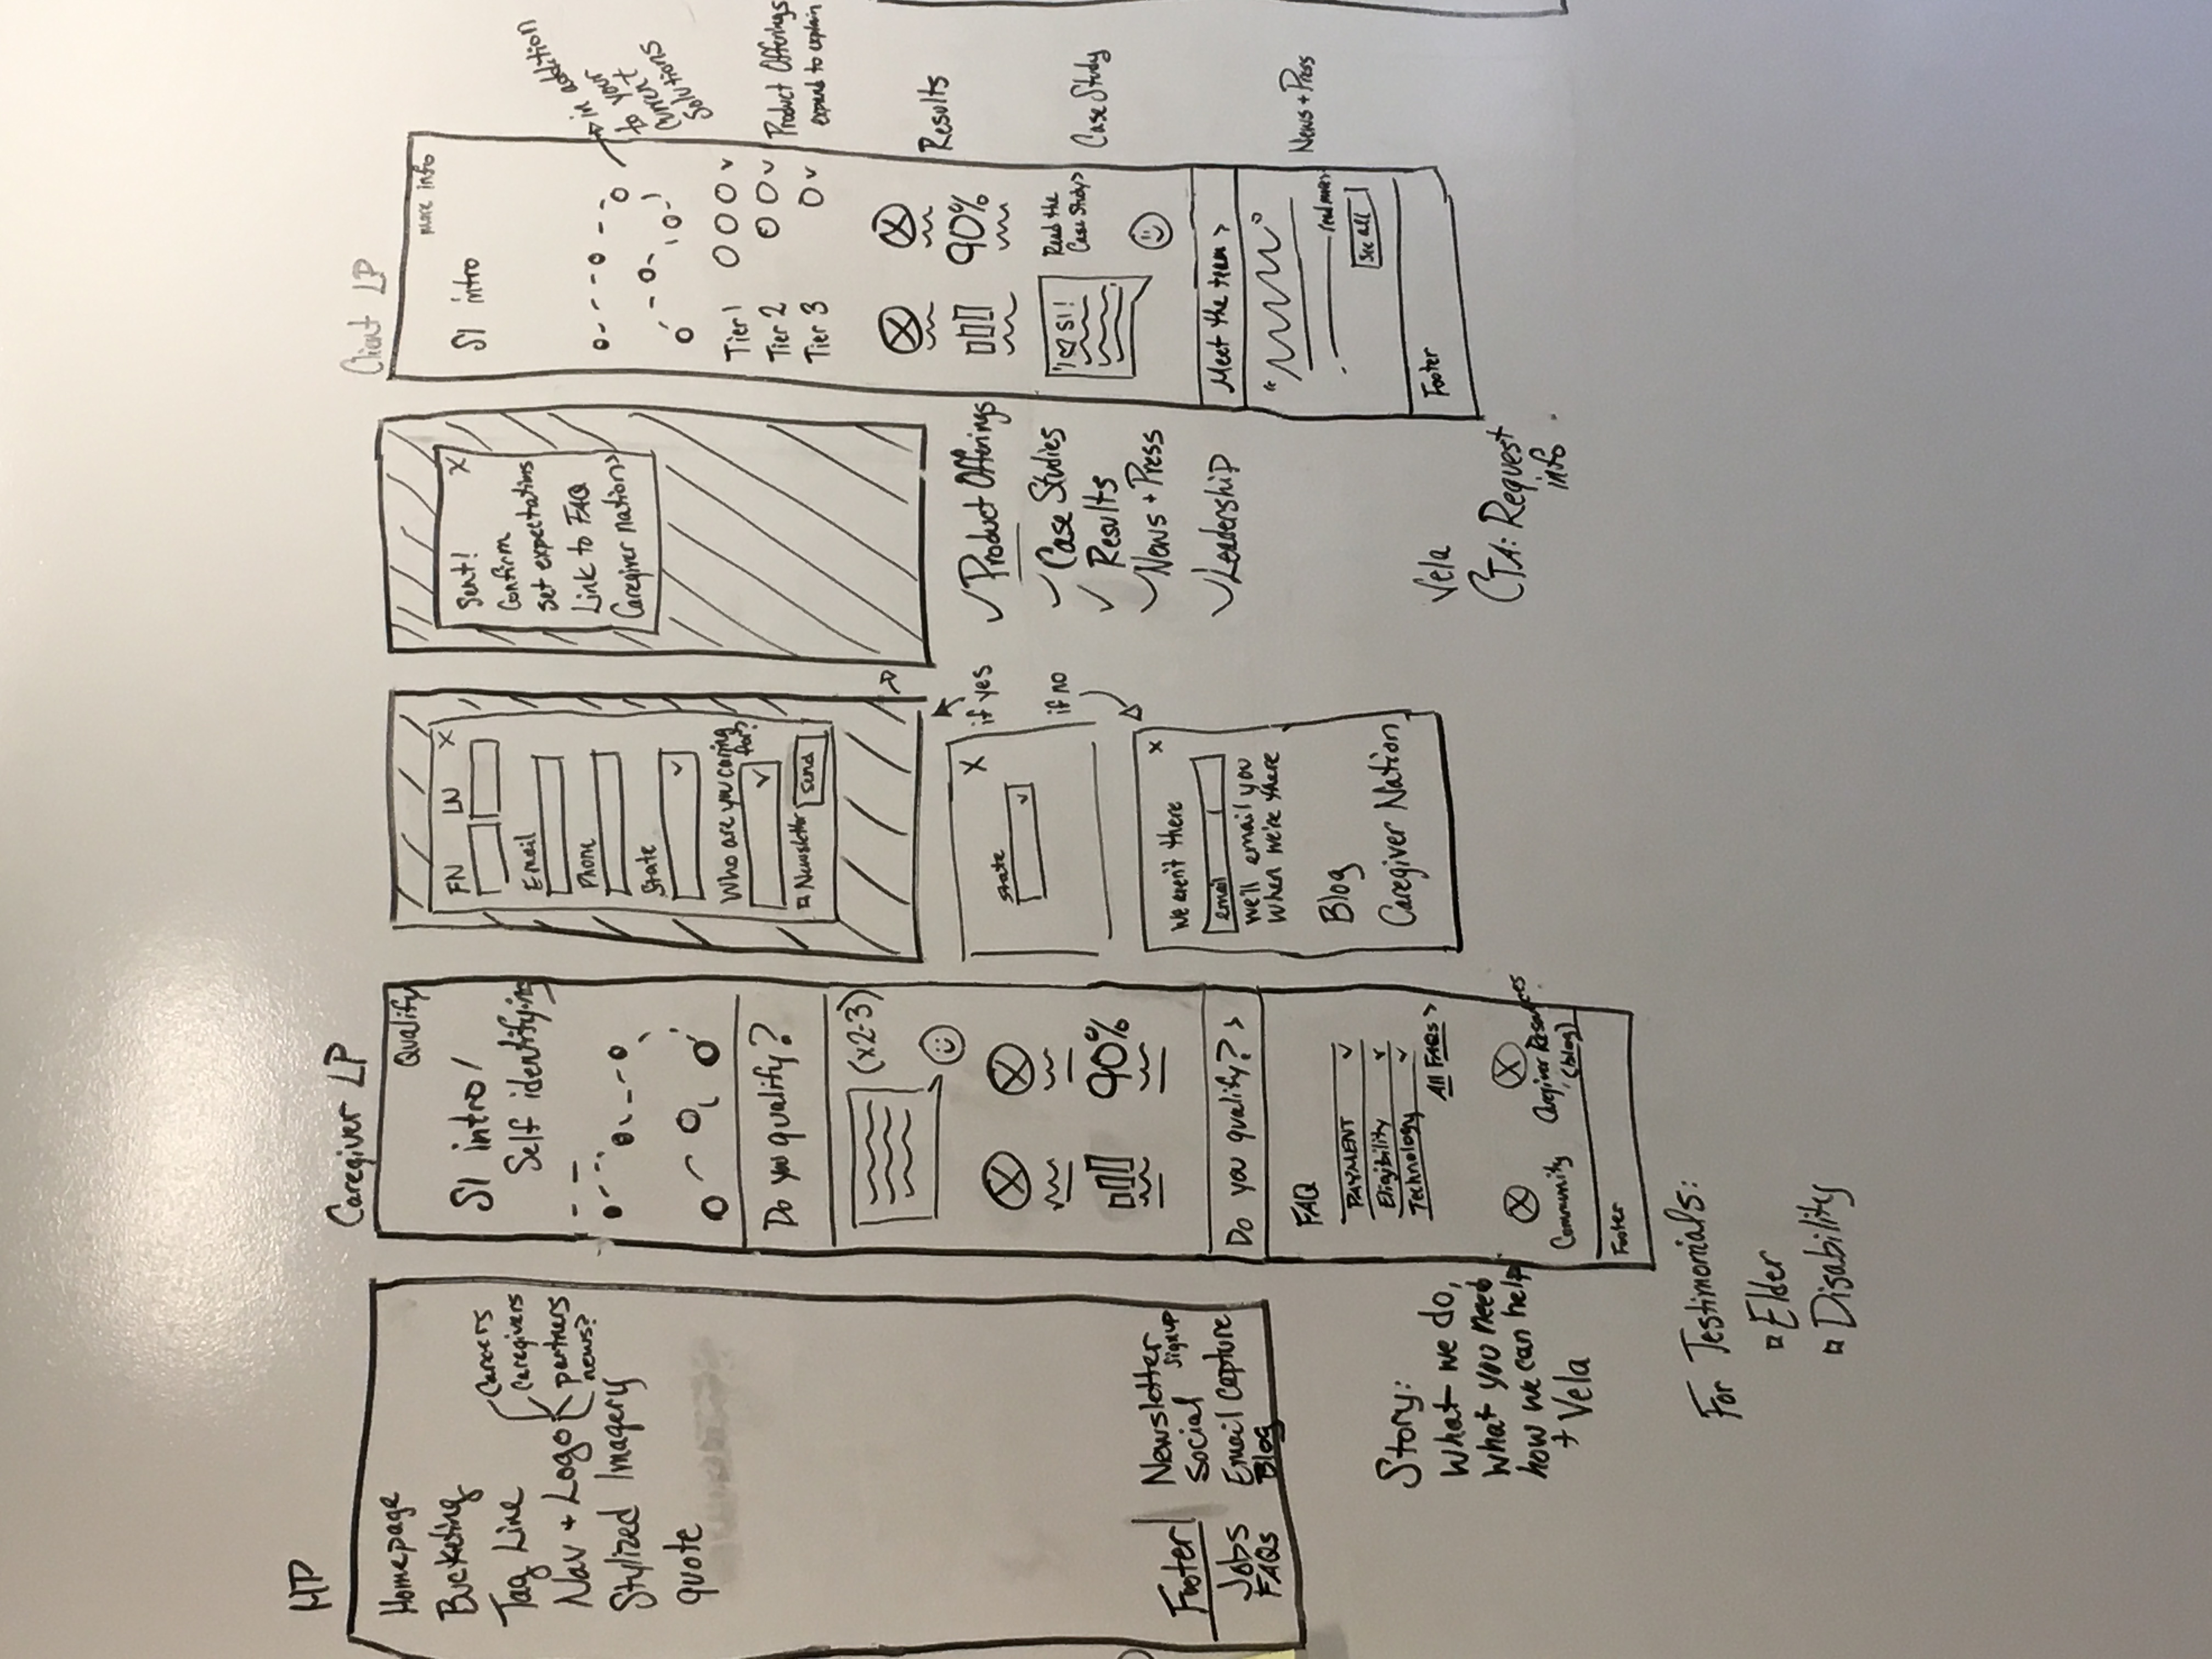 HP
Homepage
Bucketing
Tag Line
Nav + Logo
Careers
Caregivers
partners
news?
Stylized Imagery
quote
Footer
Jobs
FAQs
Newsletter
signup
Social
Email Capture
Blog
Story:
What we do,
what you need
how we can help
+ Vela
Caregiver LP
Qualify
SI intro/
Self identifying
Do you qualify?
(x2-3)
90%
Do you qualify? >
FAQ
PAYMENT
Eligibility
Technology
All FAQs >
Community
Caregiver Resources
(blog)
Footer
For Testimonials:
Elder
Disability
FN LN X
Email
Phone
State
Who are you caring
for?
Newsletter Send
if yes
if no
X
State
We aren't there X
email
we'll email you
when we're there
Blog
Caregiver Nation
Sent! X
Confirm
set expectations
Link to FAQ
Caregiver nation >
Product Offerings
Case Studies
Results
News + Press
Leadership
Vela
CTA: Request
info
Client LP
more info
SI intro
in addition
to your
current
solutions
Tier 1
Tier 2
Tier 3
Product Offerings
expand to explain
Results
90%
I ♡ SI!
Read the
Case Study >
Case Study
Meet the team >
News + Press
read more >
See all
Footer